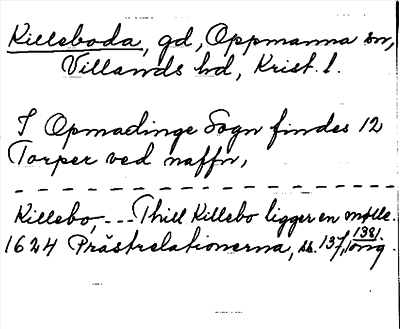 Killeboda, gd, Oppmanna sn,
Villands hd, Krist. l.
I Opmadinge Sogn findes 12
Torper ved naffn,
Killebo, --- Thill Killebo ligger en mølle.
1624 Prästrelationerna, ss. 137, 138 orig.